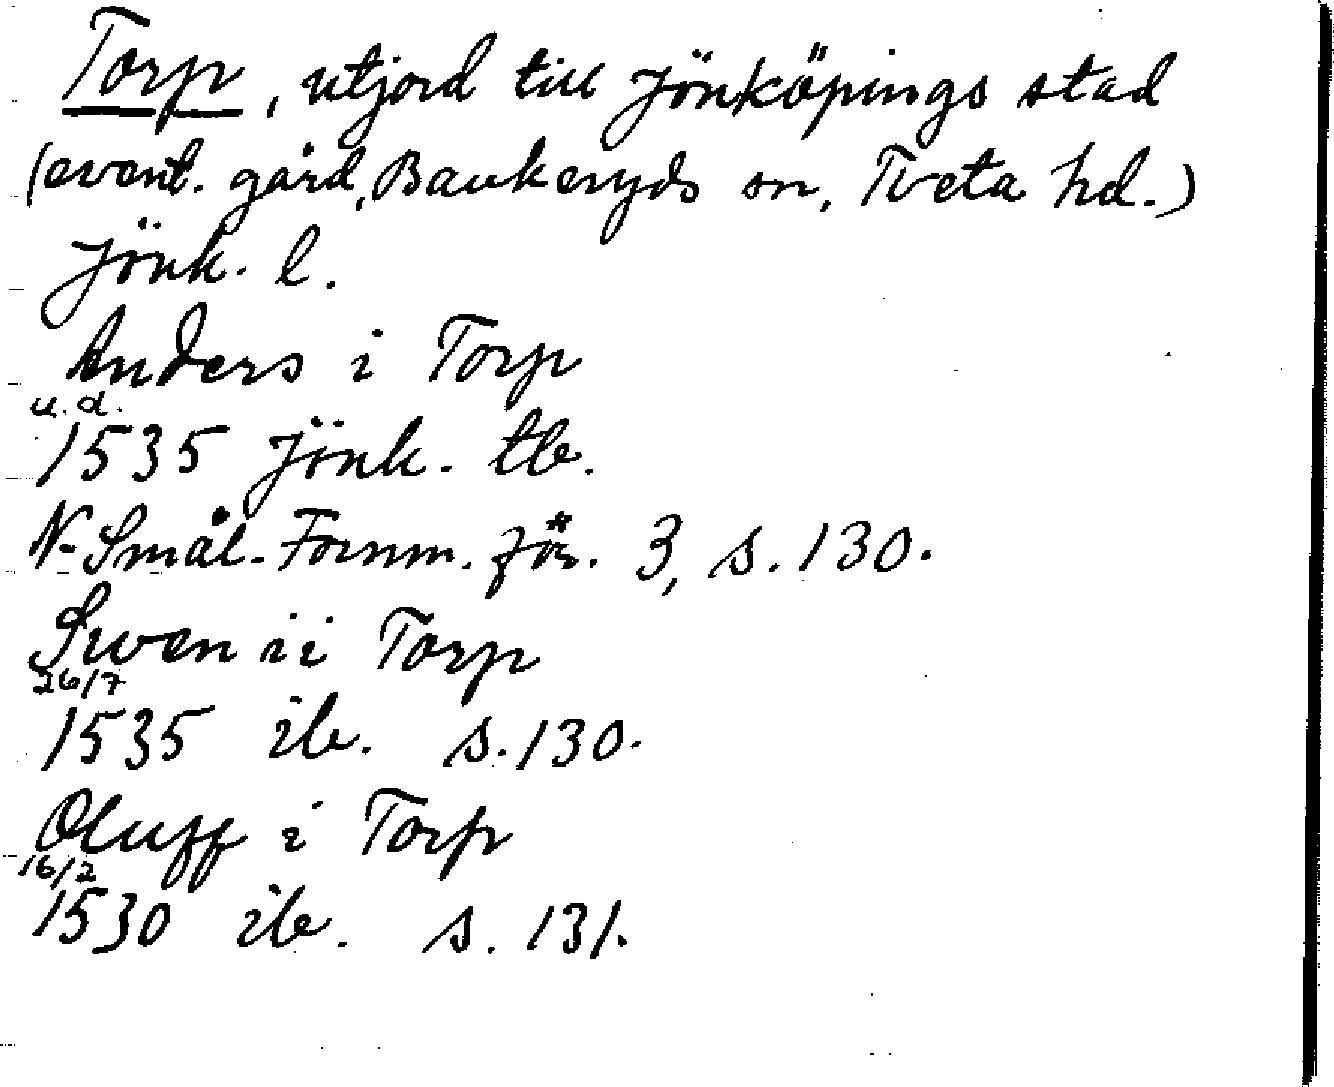 Torp, utjord till Jönköpings stad
(event. gård, Bankeryds sn, Tveta hd.)
Jönk. l.
Anders i Torp
u. d.
1535 Jönk. tb.
N. Smål. Fornm. för. 3, s. 130.
Swen ii Torp
26/7
1535 ib. s. 130.
Oluff i Torp
16/2
1530 ib. s. 131.